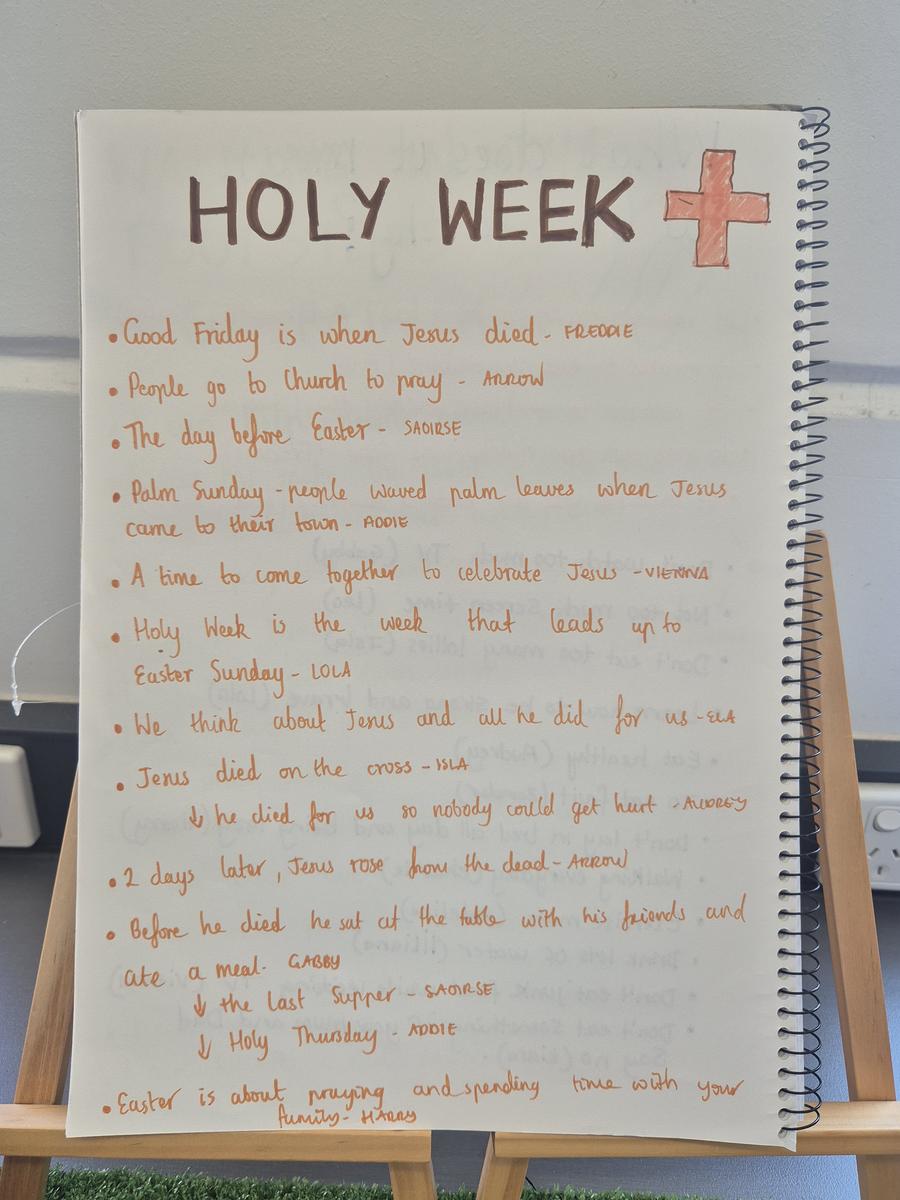 HOLY WEEK
• Good Friday is when Jesus died - FREDDIE
• People go to Church to pray - ARROW
• The day before Easter - SAOIRSE
• Palm Sunday - people waved palm leaves when Jesus
came to their town - ADDIE
• A time to come together to celebrate Jesus - VIENNA
• Holy Week is the week that leads up to
Easter Sunday - LOLA
• We think about Jesus and all he did for us - ELA
• Jesus died on the cross - ISLA
↓ he died for us so nobody could get hurt - AUDREY
• 2 days later, Jesus rose from the dead - ARROW
• Before he died he sat at the table with his friends and
ate a meal - GABBY
↓ the Last Supper - SAOIRSE
↓ Holy Thursday - ADDIE
• Easter is about praying and spending time with your
family - HARRY